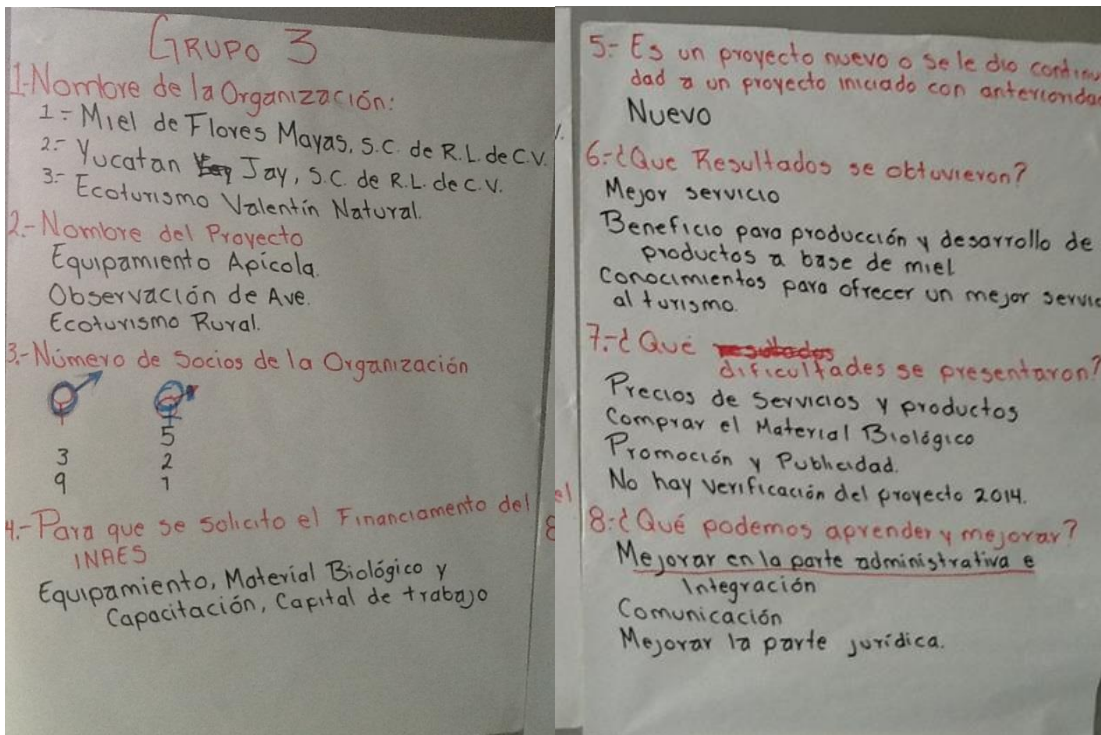 GRUPO 3
1.-Nombre de la Organización:
1.- Miel de Flores Mayas, S.C. de R.L. de C.V.
2.- Yucatan Jay, S.C. de R.L. de C.V.
3.- Ecoturismo Valentín Natural.
2.-Nombre del Proyecto
Equipamiento Apícola.
Observación de Ave.
Ecoturismo Rural.
3.-Número de Socios de la Organización
5
3 2
9 1
4.-Para que se solicito el Financiamento del
INAES
Equipamiento, Material Biológico y
Capacitación, Capital de trabajo
5.- Es un proyecto nuevo o se le dio continu
dad a un proyecto iniciado con anteriorida
Nuevo
6.-¿Que Resultados se obtuvieron?
Mejor servicio
Beneficio para producción y desarrollo de
productos a base de miel
Conocimientos para ofrecer un mejor servic
al turismo.
7.-¿Qué resultados
dificultades se presentaron?
Precios de Servicios y productos
Comprar el Material Biológico
Promoción y Publicidad.
No hay verificación del proyecto 2014.
8.-¿Qué podemos aprender y mejorar?
Mejorar en la parte administrativa e
Integración
Comunicación
Mejorar la parte jurídica.